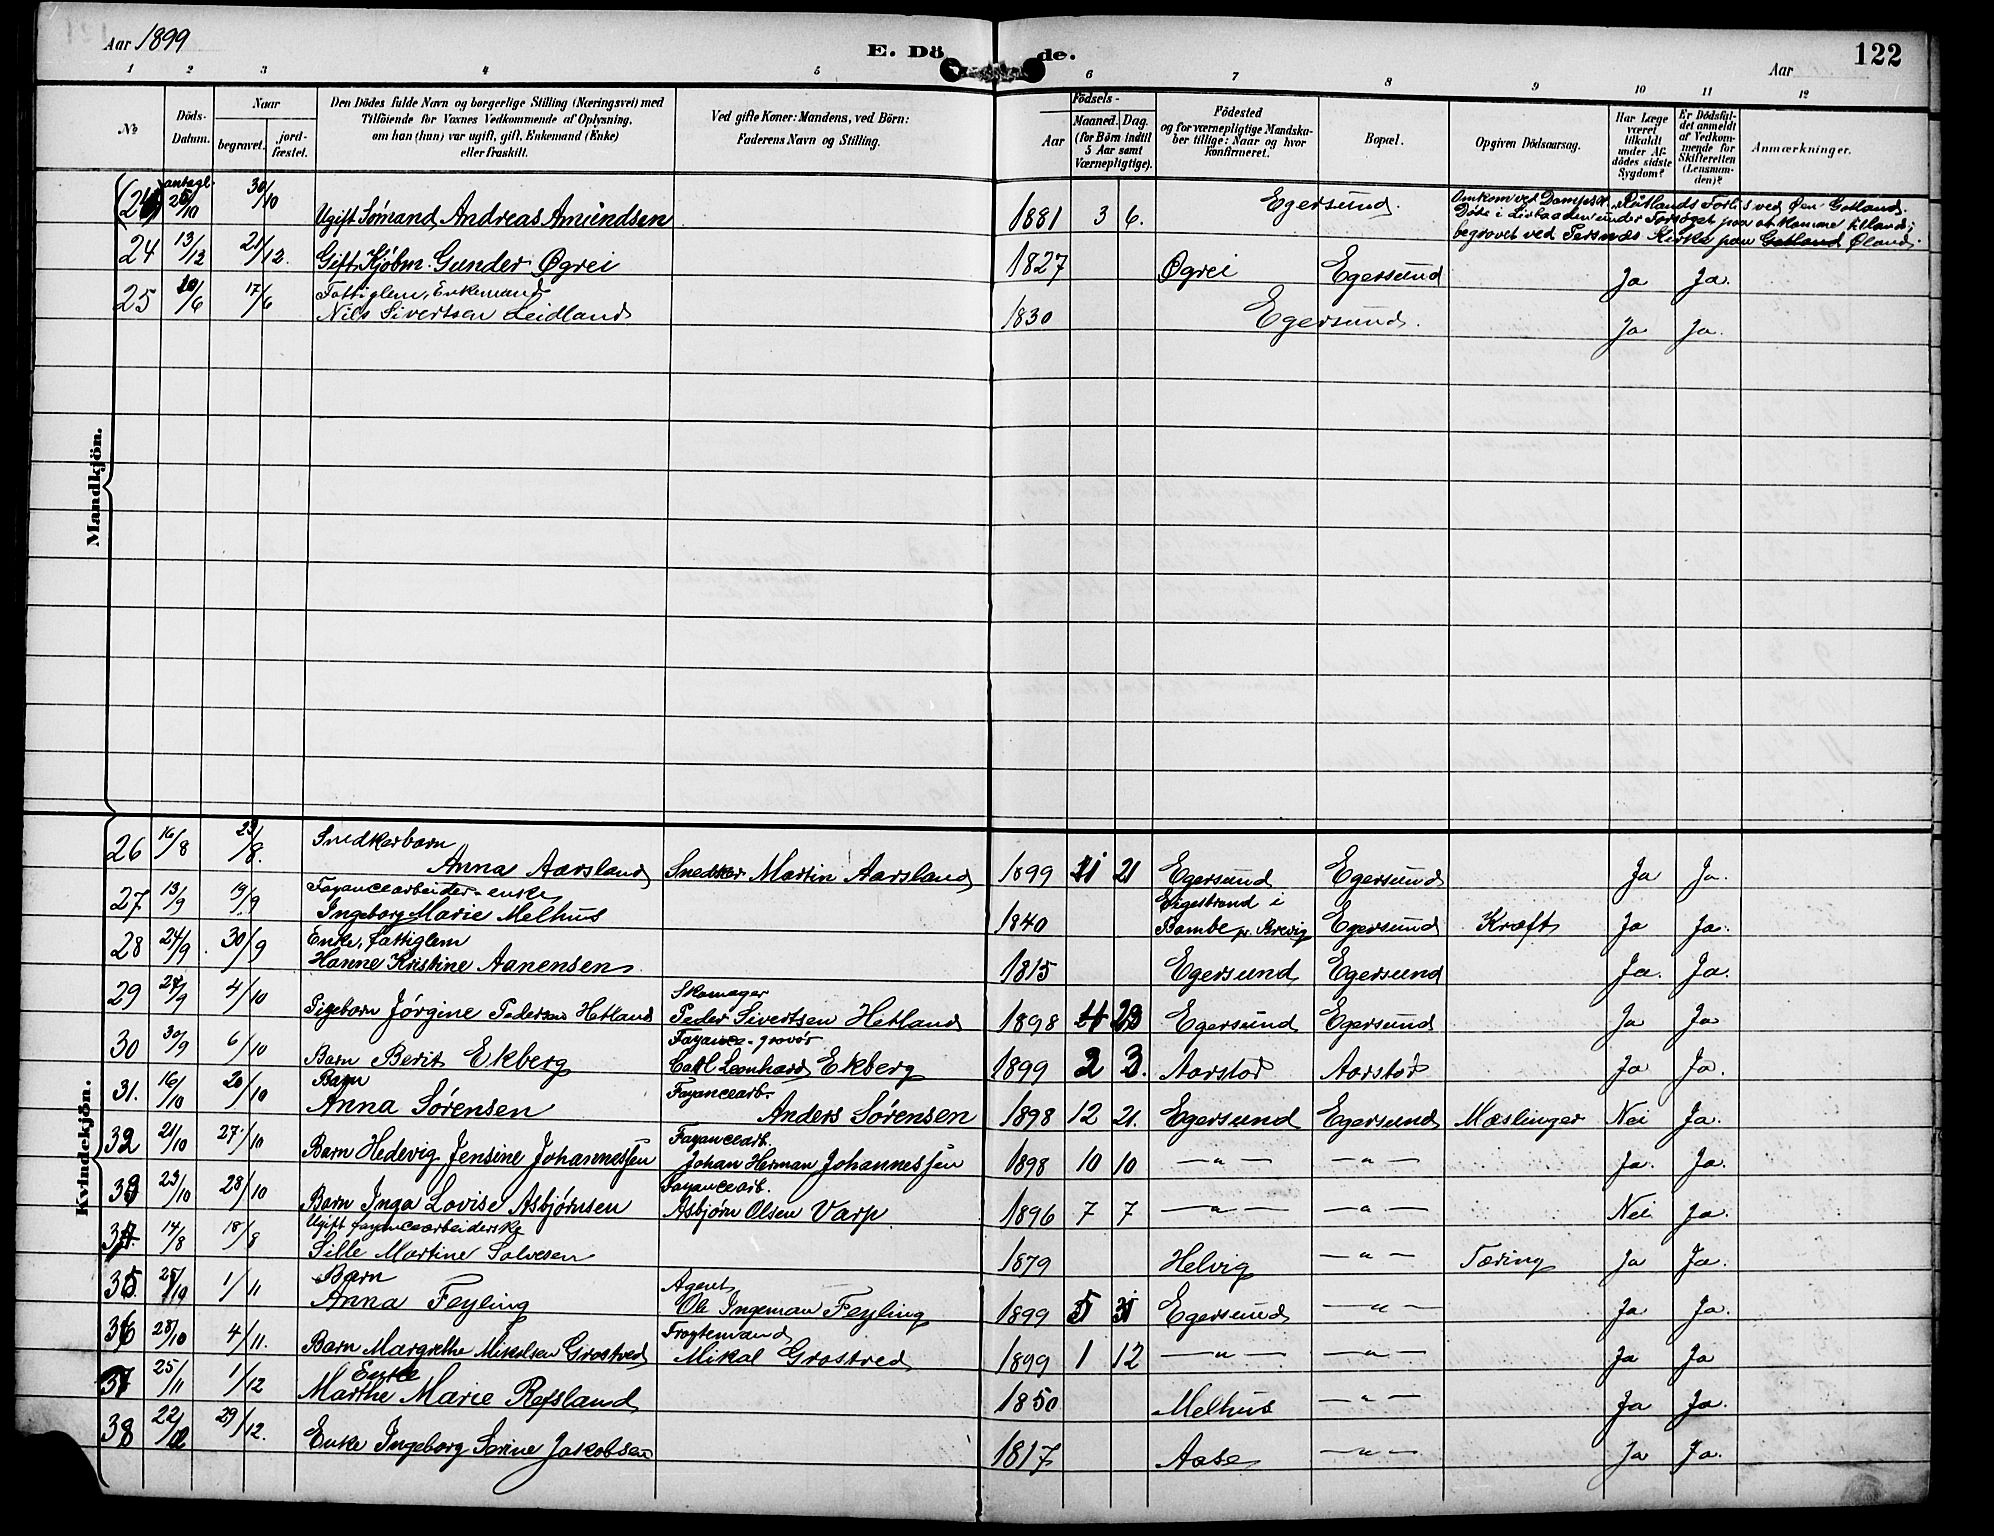 Aar 1899
E. Dö de.
Aar
122
1 2 3 4 5 6 7 8 9 10 11 12
№
Döds-
Datum.
Naar
begravet.
jord-
fæstet.
Den Dödes fulde Navn og borgerlige Stilling (Næringsvei) med
Tilföiende for Voxnes Vedkommende af Oplysning,
om han (hun) var ugift, gift, Enkemand (Enke)
eller fraskilt.
Ved gifte Koner: Mandens, ved Börn:
Faderens Navn og Stilling.
Födsels-
Aar
Maaned. Dag.
(for Börn indtil
5 Aar samt
Værnepligtige).
Födested
og for værnepligtige Mandska-
ber tillige: Naar og hvor
konfirmeret.
Bopæl.
Opgiven Dödsaarsag.
Har Læge
været
tilkaldt
under Af-
dödes sidste
Sygdom?
Er Dödsfal-
det anmeldt
af Vedkom-
mende for
Skifteretten
(Lensman-
den)?
Anmærkninger.
Mandkjön.
antagl. 30/10 Ugift Sømand Andreas Amundsen 1881 3 6. Egersund.
Omkom ved Dampsk. Forlis ved Øen Gotland.
Døde i Livbaaden under Forsøget paa at komme iland;
begravet ved Persnæs Kirke paa Gotland Øland.
24 13/12 21/12. Gift Kjøbm. Gunder Øgrei 1827 Øgrei Egersund Ja Ja.
25 10/6 17/6 Fattiglem, Enkemand
Nils Sivertsen Leidland 1830 Egersund. Ja Ja.
Kvindekjön.
26 16/8 23/8. Snedkerbarn
Anna Aarsland Snedker Martin Aarsland 1899 21 Egersund Egersund Ja Ja.
27 13/9 19/9 Fayancearbeider-enke
Ingeborg Marie Melhus 1840 i
Bamble pr. Brevig Egersund Kræft Ja Ja.
28 24/9 30/9 Enke, fattiglem
Hanne Kristine Aanensen 1815 Egersund Egersund Ja. Ja.
29 27/9 4/10 Pigebarn Jørgine Pedersen Hetland Skomager
Peder Sivertsen Hetland 1898 4 23 Egersund Egersund Ja Ja
30 30/9 6/10 Barn Berit Ekberg Fayance-gravør
Carl Leonhard Ekberg 1899 2 3. Aarstad Aarstad Ja Ja.
31. 16/10 20/10 Barn
Anna Sørensen Fayancearb.
Anders Sørensen 1898 12 21. Egersund Egersund Mæslinger Nei Ja.
32 21/10 27/10 Barn Hedevig Jensine Johannessen Fayancearb.
Johan Herman Johannessen 1898 10 10 — „ — — „ — Ja. Ja.
33 23/10 28/10 Barn Inga Lovise Asbjørnsen Fayancearb.
Asbjørn Olsen Varp 1896 7 7 — „ — — „ — Nei Ja.
34. 14/8 18/8 Ugift fayancearbeiderske
Sille Martine Salvesen 1879 Helvig — „ — Tæring Ja Ja.
35 1/11 Barn
Anna Feyling Agent
Ole Ingeman Feyling 1899 5 31 Egersund — „ — Ja Ja.
36 28/10 4/11. Barn Margrethe Mikalsen Grøstved Fragtemand
Mikal Grøstved 1899 1 12 — „ — — „ — Ja Ja
37 25/11 1/12 Enke
Marthe Marie Refsland 1850 Melhus — „ — Ja Ja.
38 22/12 29/12. Enke Ingeborg Serine Jakobsen 1817 Aase — „ — Ja Ja.